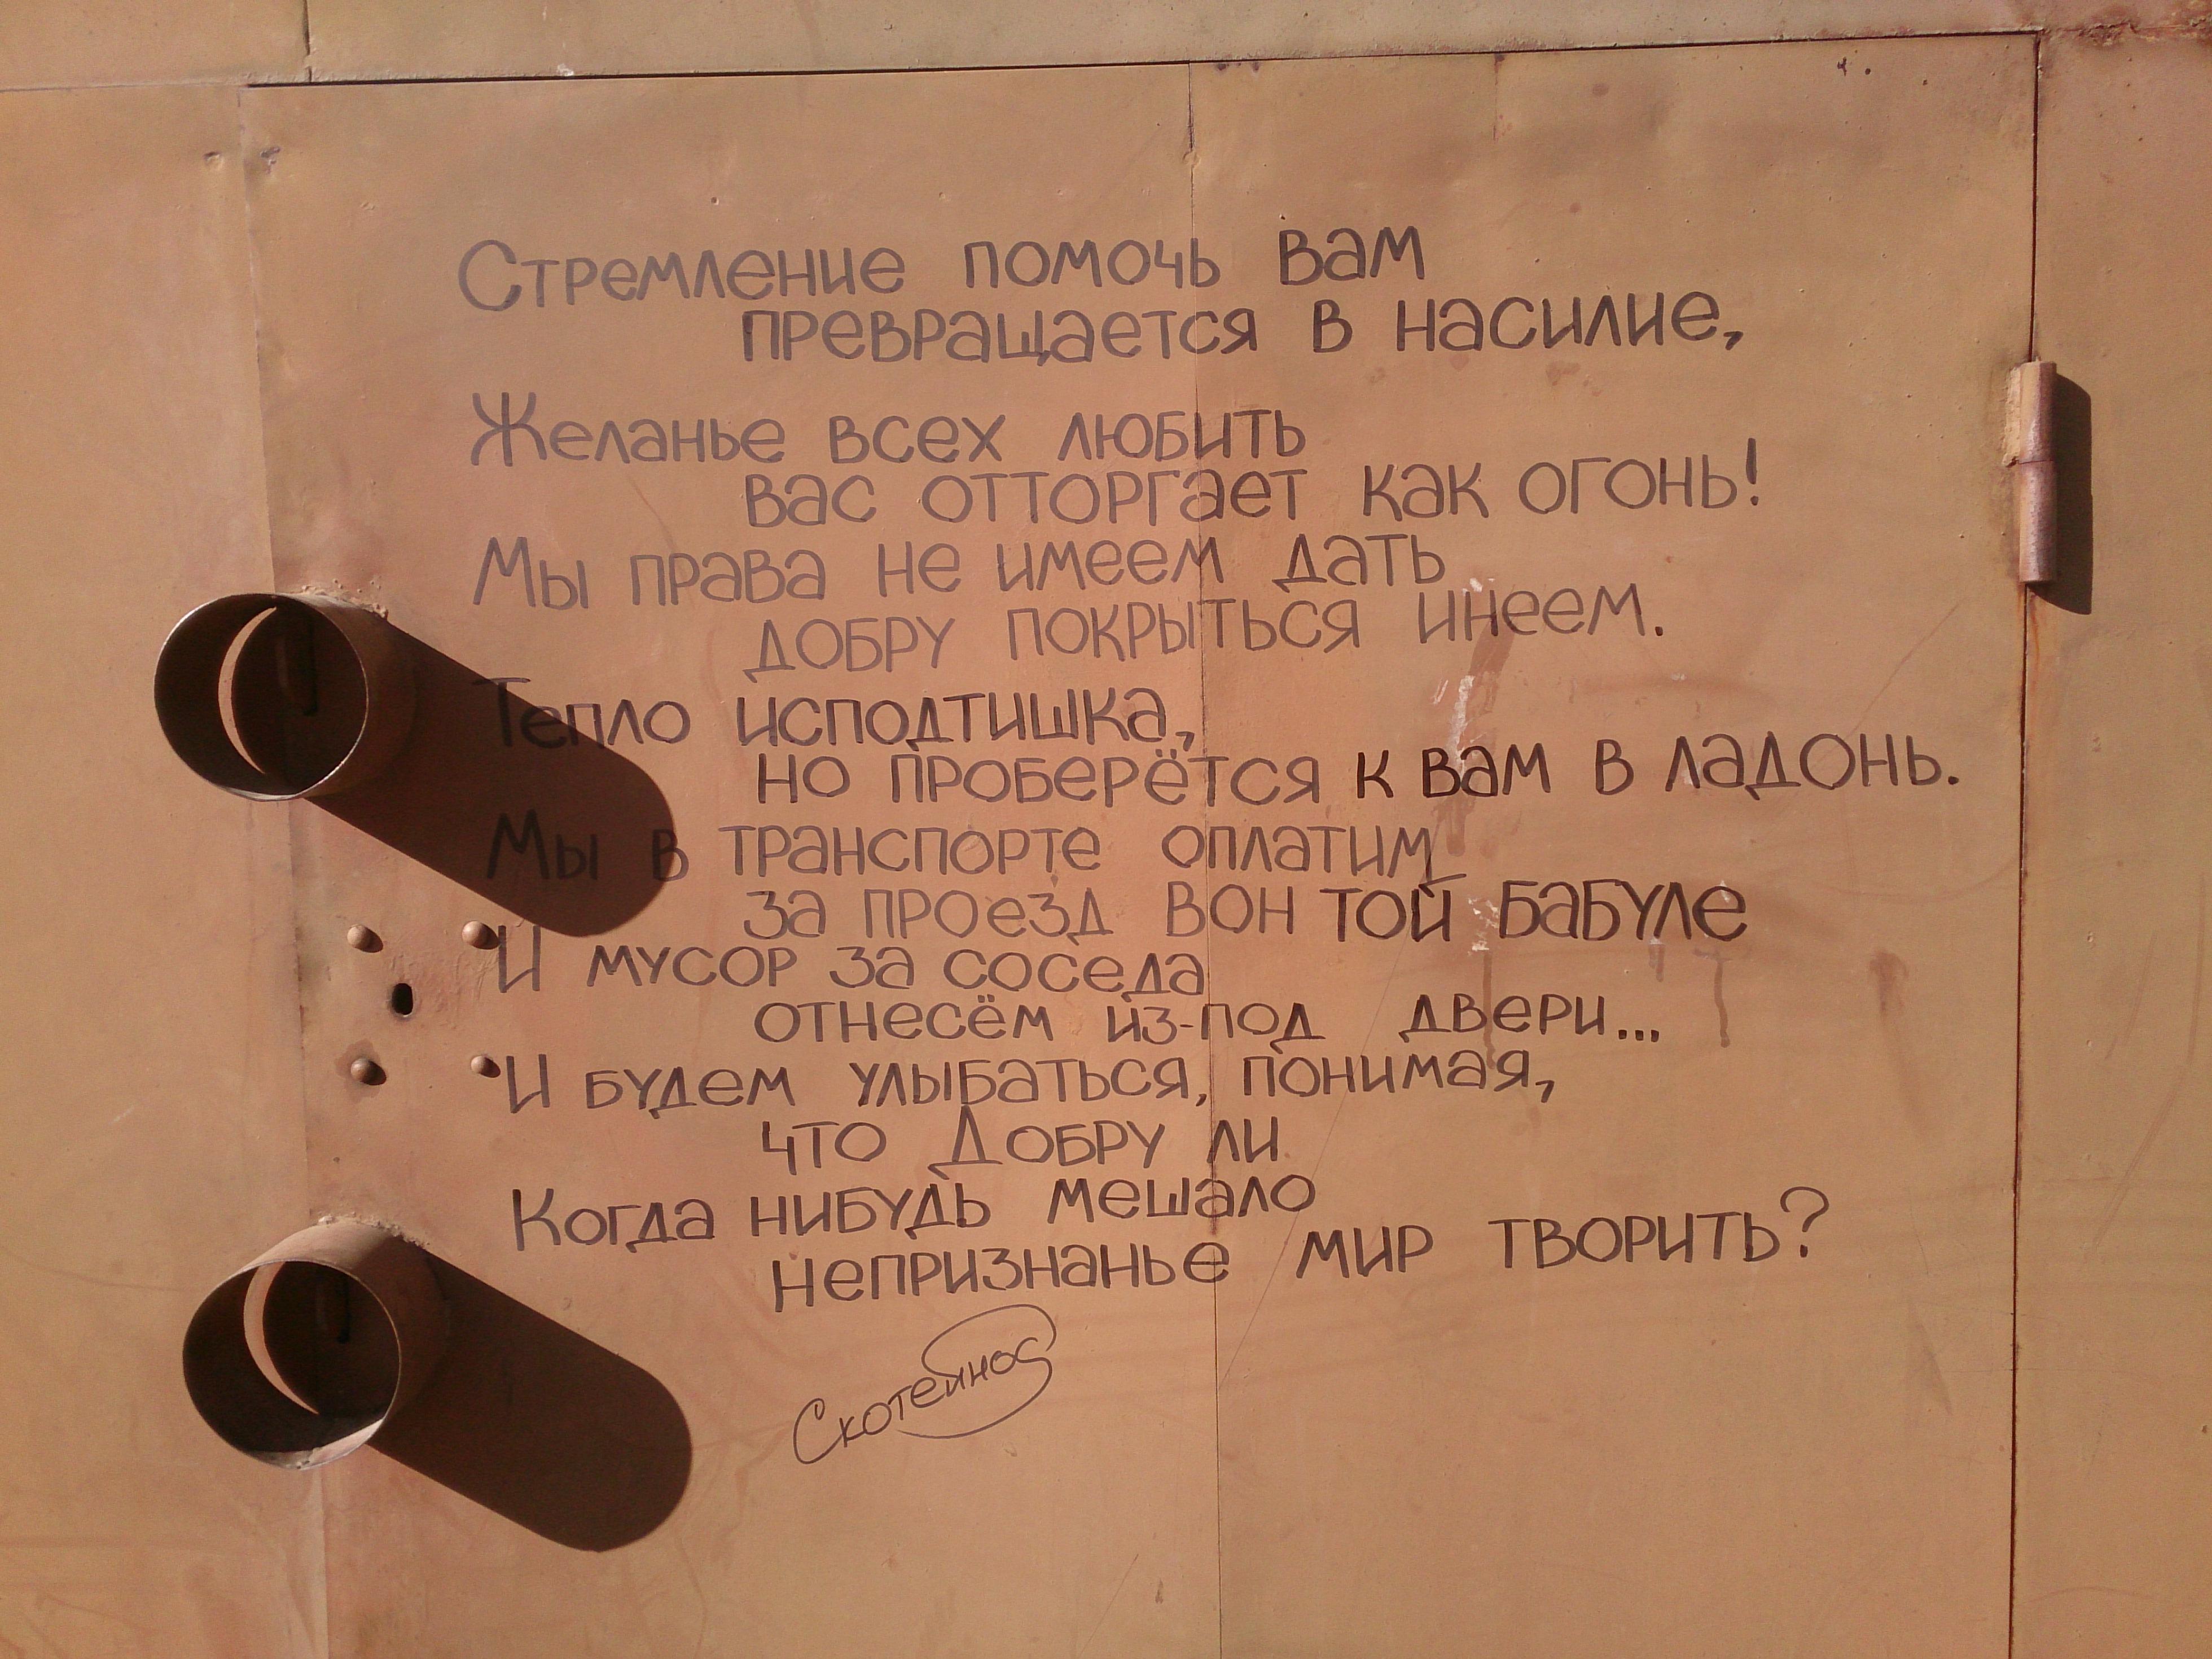 Стремление помочь вам
превращается в насилие,
Желанье всех любить
вас отторгает как огонь!
Мы права не имеем дать
добру покрыться инеем.
Тепло исподтишка,
но проберётся к вам в ладонь.
Мы в транспорте оплатим
за проезд вон той бабуле
И мусор за соседа
отнесём из-под двери...
И будем улыбаться, понимая,
что Добру ли
Когда нибудь мешало
непризнанье мир творить?
Скотейнос